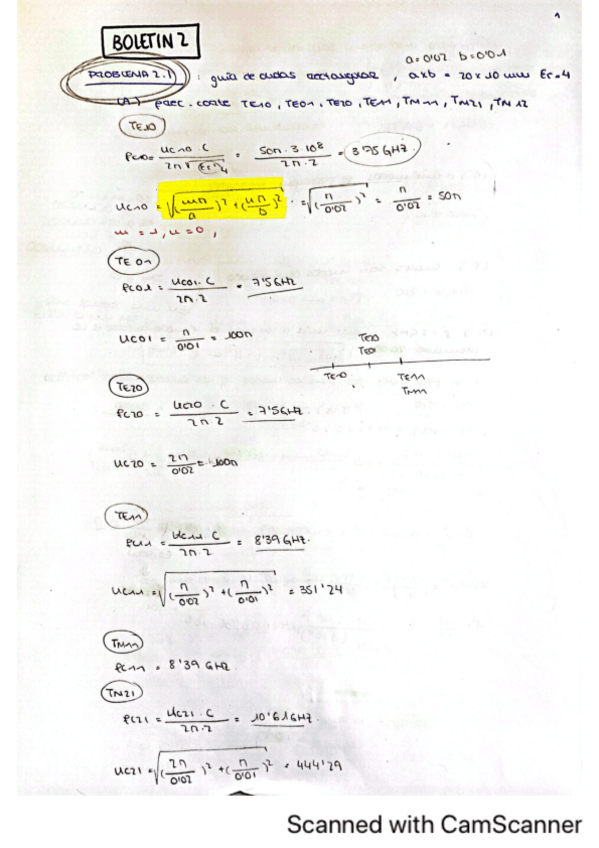 1
BOLETIN 2
a=0'02 b=0'01
PROBLEMA 2.1) : guía de ondas rectangular, axb = 20x10 mm Er=4
(A.) frec. corte TE10, TE01, TE20, TE11, TM11, TM21, TM12
TE10
fc10 = uc10 · c / 2π√(Er) 4 = 50π · 3·10^8 / 2π·2 = 3'75 GHz.
uc10 = √((mπ/a)² + (nπ/b)²) = √((π/0'02)²) = π/0'02 = 50π
m = 1, n = 0,
TE01
fc01 = uc01 · c / 2π·2 = 7'5 GHz
uc01 = π/0'01 = 100π
TE20
TE01
TE10 TE11
TM11
TE20
fc20 = uc20 · c / 2π·2 = 7'5 GHz.
uc20 = 2π/0'02 = 100π
TE11
fc11 = uc11 · c / 2π·2 = 8'39 GHz.
uc11 = √((π/0'02)² + (π/0'01)²) = 351'24
TM11
fc11 = 8'39 GHz.
TM21
fc21 = uc21 · c / 2π·2 = 10'61 GHz.
uc21 = √((2π/0'02)² + (π/0'01)²) = 444'29
Scanned with CamScanner